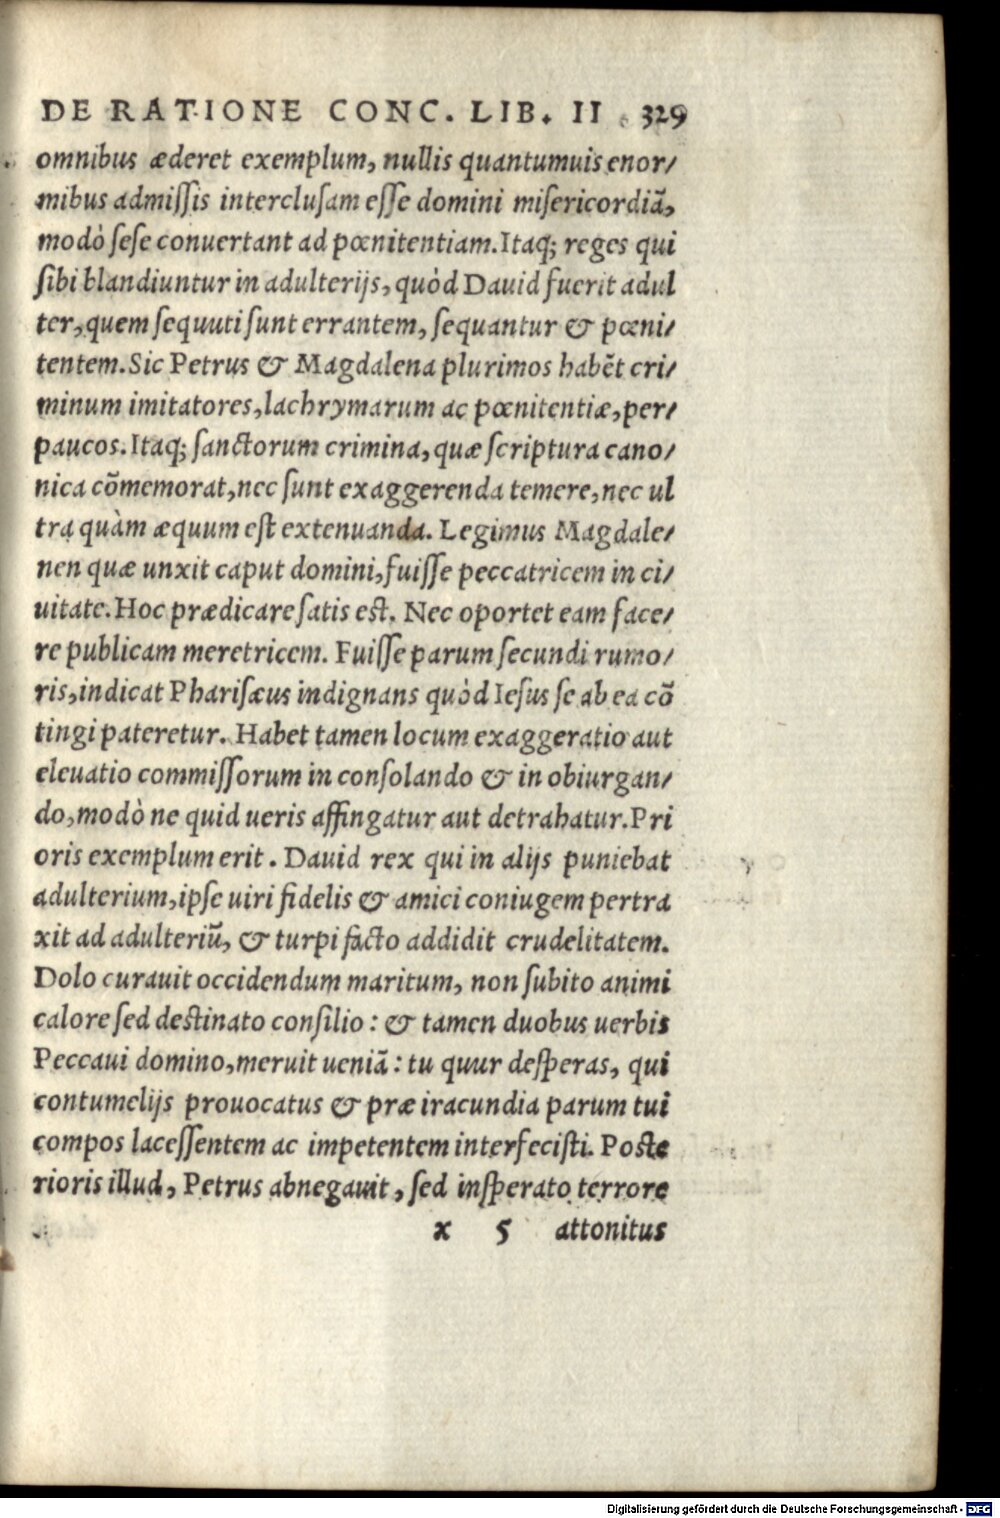 DE RATIONE CONC. LIB. II . 329
omnibus æderet exemplum, nullis quantumuis enor/
mibus admiſſis intercluſam eſſe domini miſericordiã,
modò ſeſe conuertant ad pœnitentiam. Itaq; reges qui
ſibi blandiuntur in adulterijs, quòd Dauid fuerit adul
ter, quem ſequuti ſunt errantem, ſequantur & pœni/
tentem. Sic Petrus & Magdalena plurimos habẽt cri/
minum imitatores, lachrymarum ac pœnitentiæ, per/
paucos. Itaq; ſanctorum crimina, quæ ſcriptura cano/
nica cõmemorat, nec ſunt exaggerenda temere, nec ul
tra quàm æquum eſt extenuanda. Legimus Magdale/
nen quæ unxit caput domini, fuiſſe peccatricem in ci/
uitate. Hoc prædicare ſatis eſt. Nec oportet eam face/
re publicam meretricem. Fuiſſe parum ſecundi rumo/
ris, indicat Phariſæus indignans quòd Ieſus ſe ab ea cõ
tingi pateretur. Habet tamen locum exaggeratio aut
eleuatio commiſſorum in conſolando & in obiurgan/
do, modò ne quid ueris affingatur aut detrahatur. Pri
oris exemplum erit. Dauid rex qui in alijs puniebat
adulterium, ipſe uiri fidelis & amici coniugem pertra
xit ad adulteriũ, & turpi facto addidit crudelitatem.
Dolo curauit occidendum maritum, non ſubito animi
calore ſed deſtinato conſilio: & tamen duobus uerbis
Peccaui domino, meruit ueniã: tu quur deſperas, qui
contumelijs prouocatus & præ iracundia parum tui
compos laceſſentem ac impetentem interfeciſti. Poſte
rioris illud, Petrus abnegauit, ſed inſperato terrore
x 5 attonitus
Digitalisierung gefördert durch die Deutsche Forschungsgemeinschaft - DFG